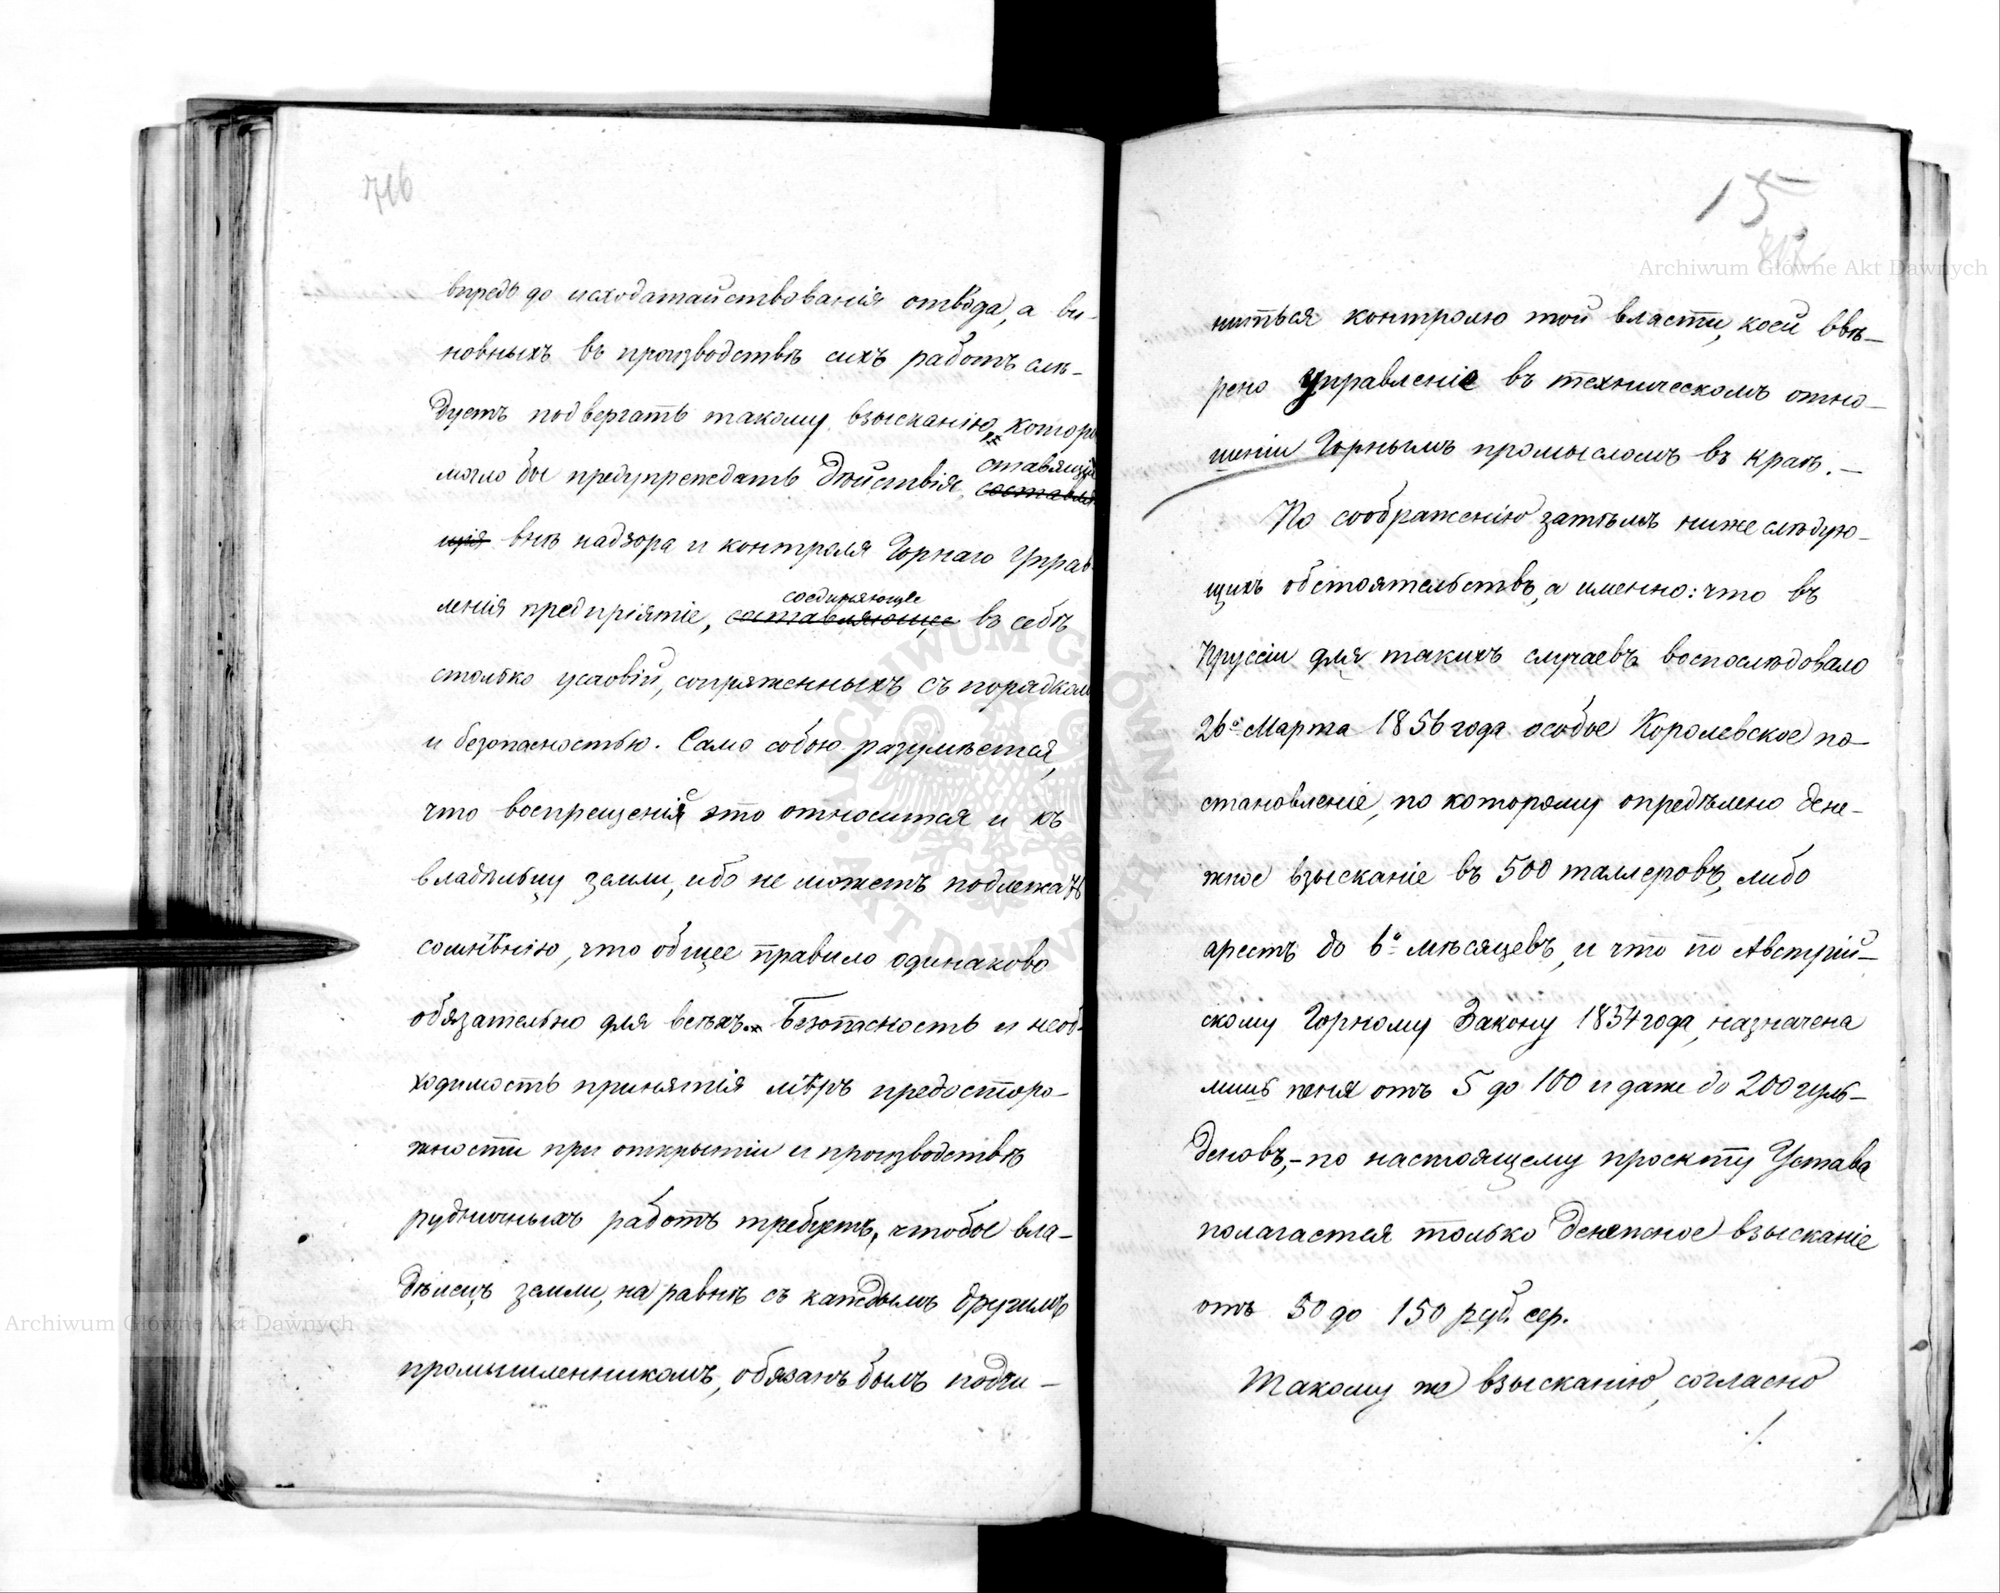 716
впредь до исходатайствованія отвода, а ви-
новныхъ въ производствѣ сихъ работъ слѣ-
дуетъ подвергать такому взысканію, котор
могло бы предупреждать дѣйствія, ставящія
составля
щія внѣ надзора и контроля Горнаго Управ-
соединяющее
ленія предпріятіе, составляющее въ себѣ
столько условій, сопряженныхъ съ порядкомъ
и безопасностью. Само собою разумѣется,
что воспрещеніе это относится и къ
владѣльцу земли, ибо не можетъ подлежать
сомнѣнію, что общее правило одинаково
обязательно для всѣхъ. Безопасность и необ-
ходимость принятія мѣръ предосторо-
жности при открытіи и производствѣ
рудничныхъ работъ требуетъ, чтобы вла-
дѣлецъ земли, на равнѣ съ каждымъ другимъ
промышленникомъ, обязанъ былъ подчи-
15
ниться контролю той власти, коей ввѣ-
рено управленіе въ техническомъ отно-
шеніи Горнымъ промысломъ въ краѣ.-
По соображенію затѣмъ нижеслѣдую-
щихъ обстоятельствъ, а именно: что въ
Пруссіи для такихъ случаевъ воспослѣдовало
26го Марта 1856 года особое Королевское по-
становленіе, по которому опредѣлено дене-
жное взысканіе въ 500 таллеровъ, либо
арестъ до 6и мѣсяцевъ, и что по Австрій-
скому Горному Закону 1854 года, назначена
лишь пеня отъ 5 до 100 и даже до 200 гуль-
деновъ,-по настоящему проекту Устава
полагается только денежное взысканіе
отъ 50 до 150 руб. сер.
Такому же взысканію, согласно
./.
Archiwum Główne Akt Dawnych
Archiwum Główne Akt Dawnych
ARCHIWUM GŁÓWNE AKT DAWNYCH